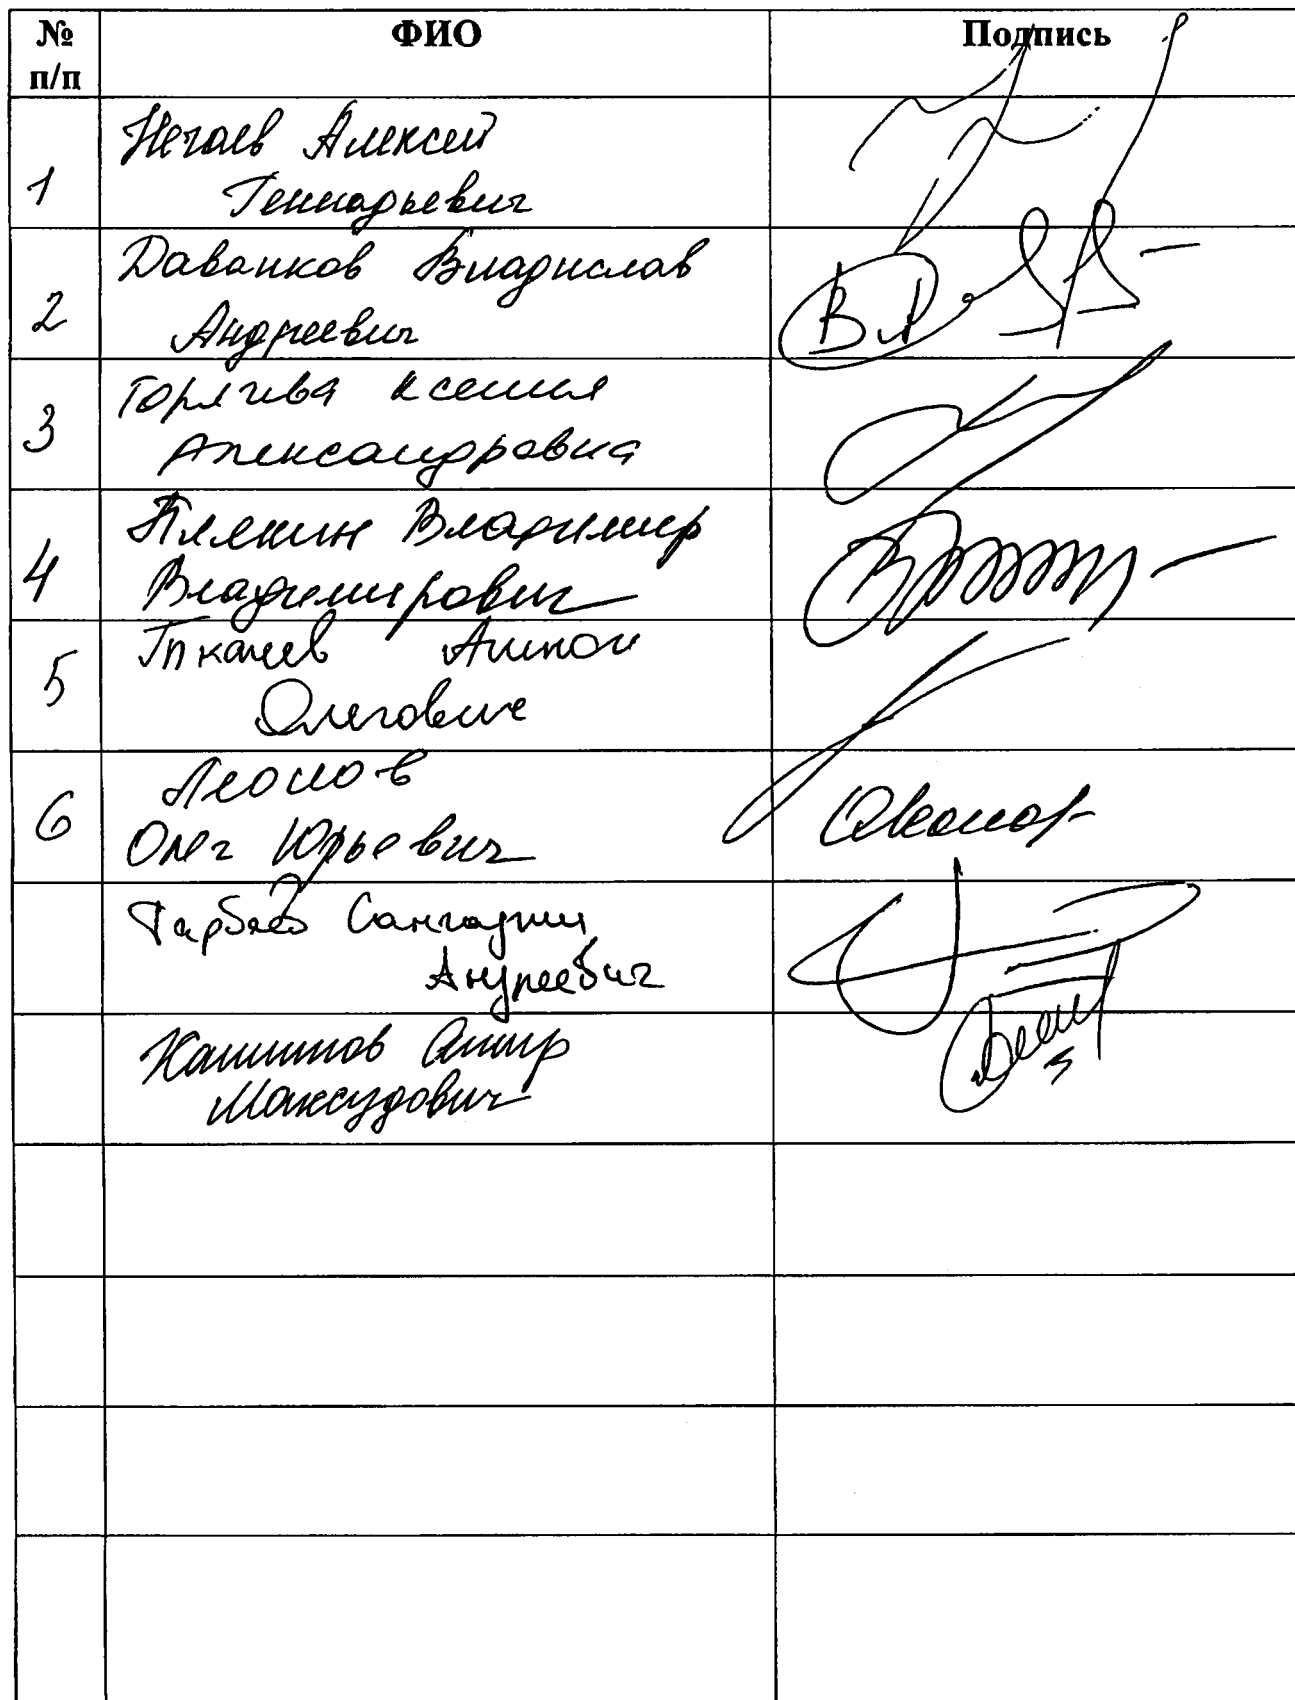 № ФИО Подпись
п/п
Нечаев Алексей
1 Геннадьевич
Даванков Владислав
2 Андреевич
Горячева Ксения
3 Александровна
Плякин Владимир
4 Владимирович
Ткачев Антон
5 Олегович
Леонов
6 Олег Юрьевич
Тарбаев Сангаджи
Андреевич
Хамитов Амир
Максудович